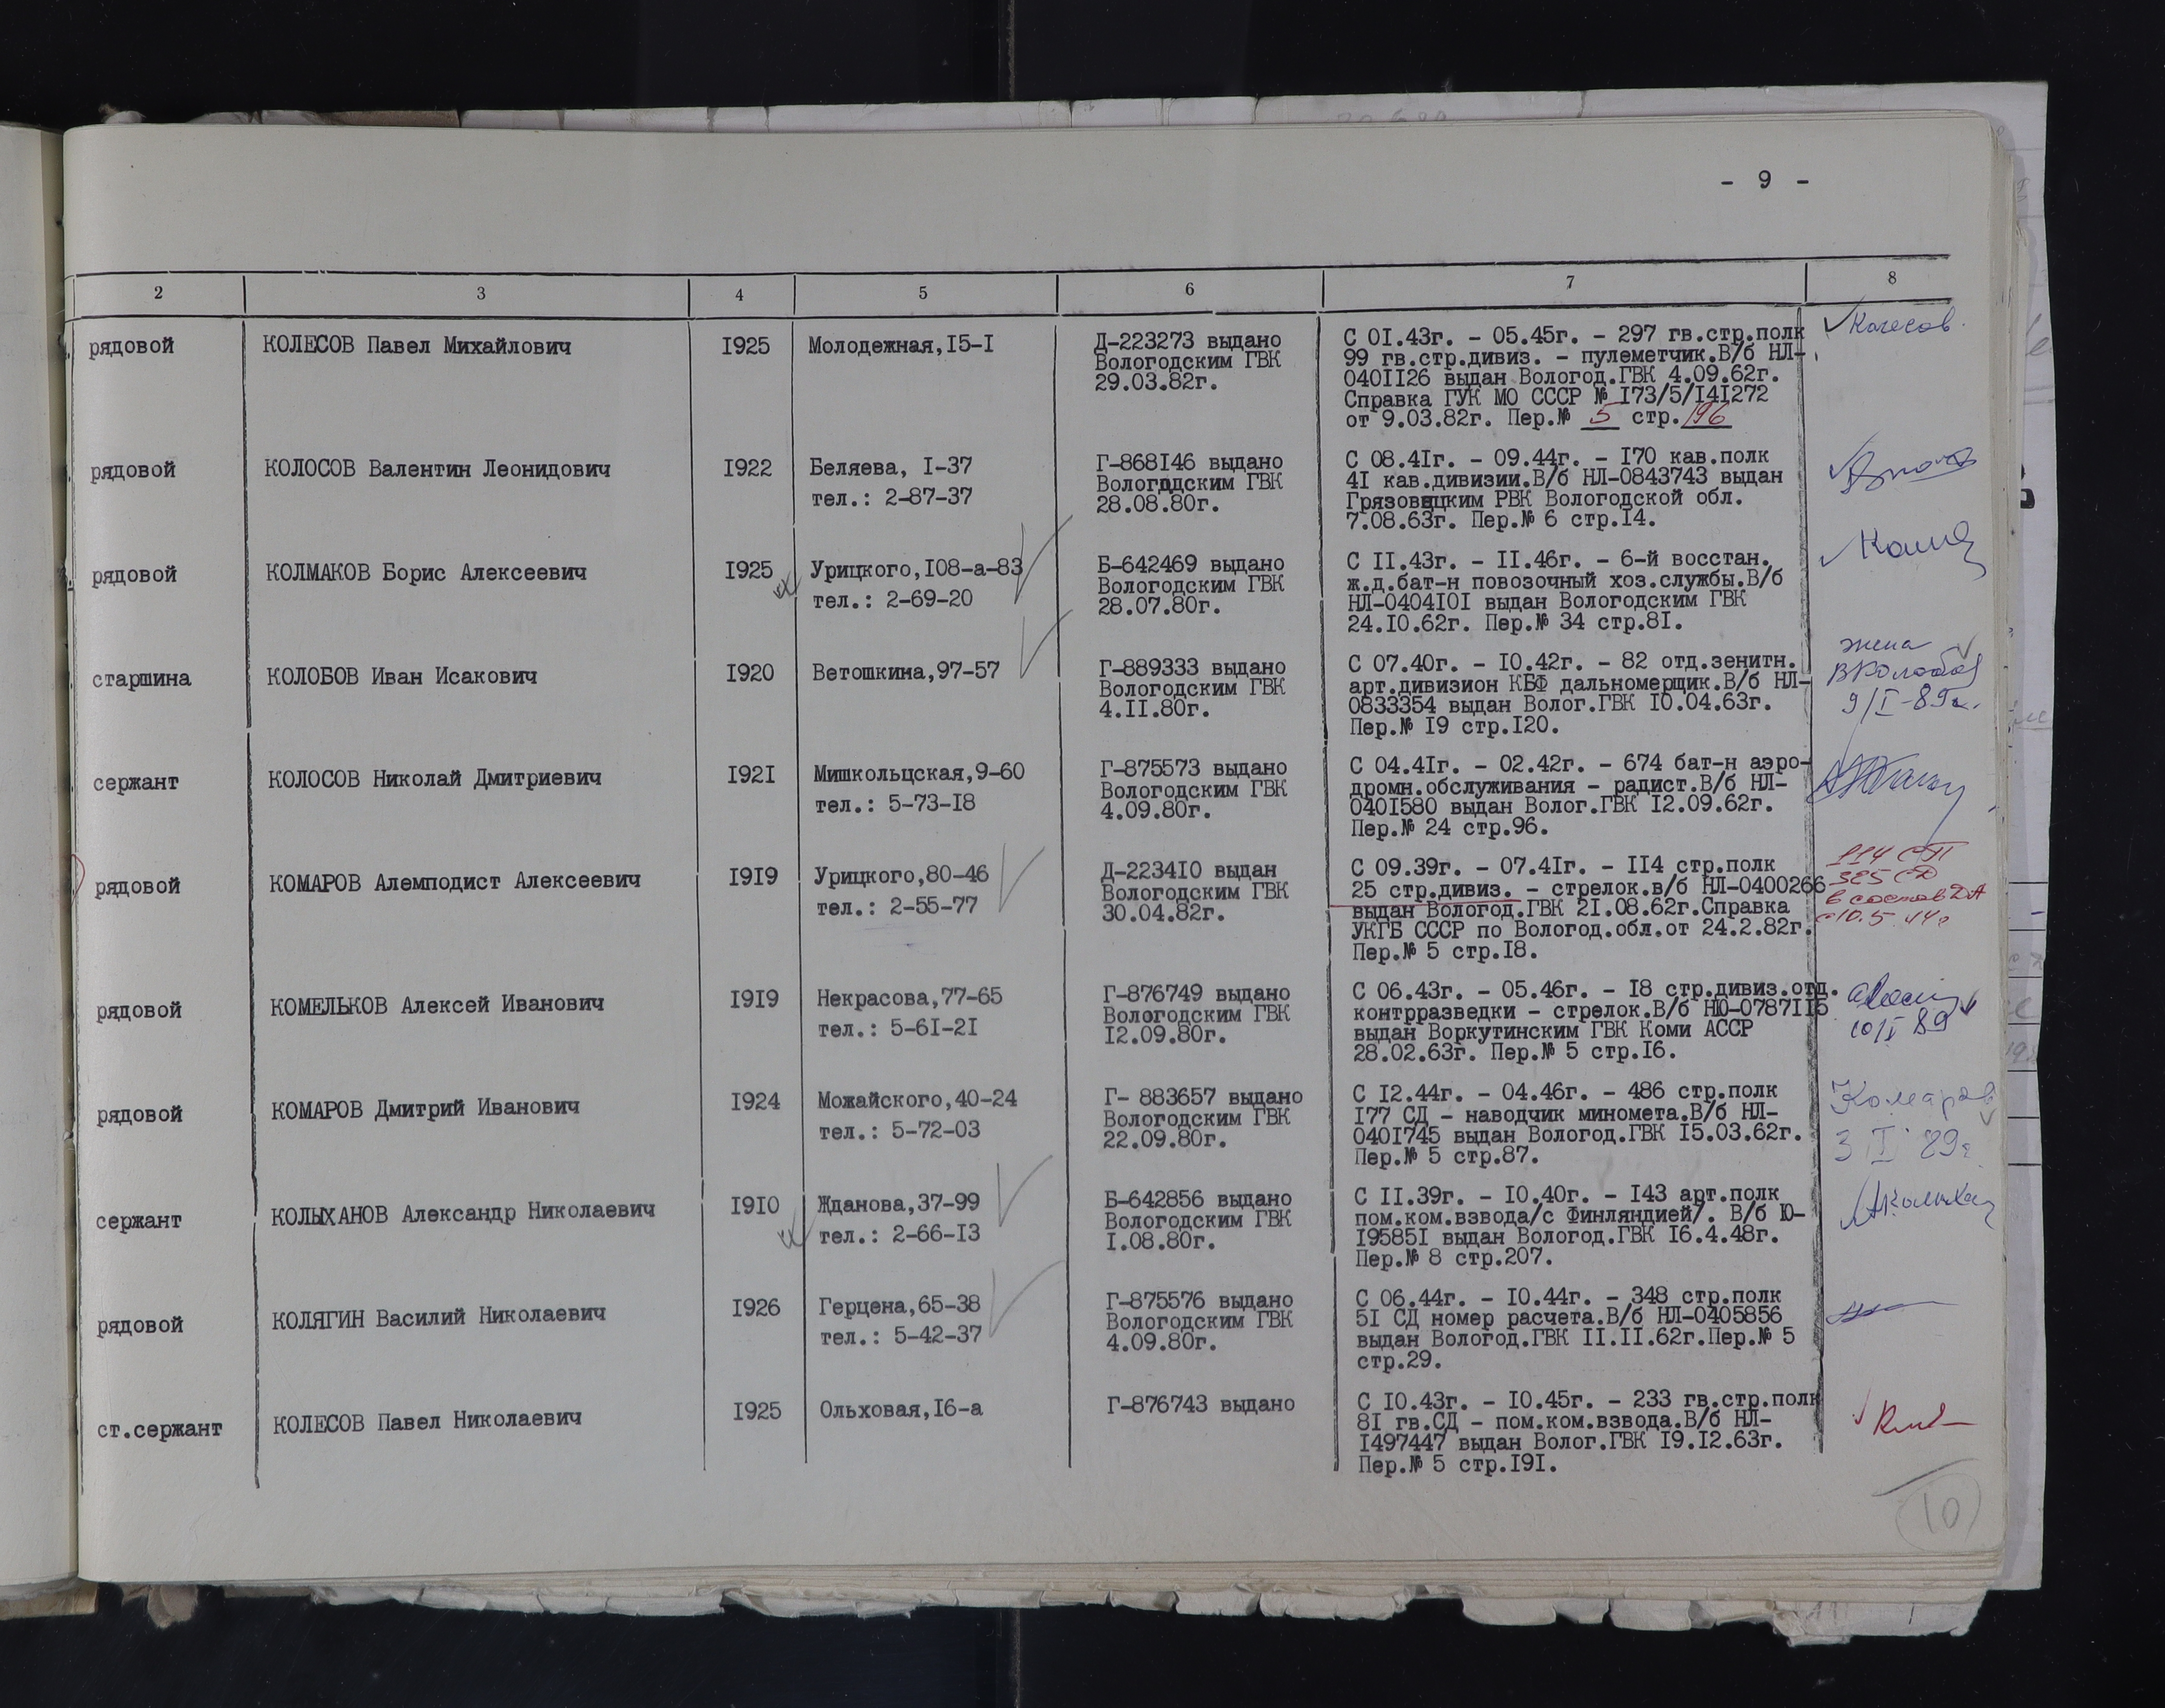 - 9 -
2 3 4 5 6 7 8
рядовой
КОЛЕСОВ Павел Михайлович
1925
Молодежная,15-1
Д-223273 выдано
Вологодским ГВК
29.03.82г.
С 01.43г. - 05.45г. - 297 гв.стр.полк
99 гв.стр.дивиз. - пулеметчик.В/б НЛ-
0401126 выдан Вологод.ГВК 4.09.62г.
Справка ГУК МО СССР № 173/5/141272
от 9.03.82г. Пер.№ 5 стр.196
Колесов
рядовой
КОЛОСОВ Валентин Леонидович
1922
Беляева, 1-37
тел.: 2-87-37
Г-868146 выдано
Вологодским ГВК
28.08.80г.
С 08.41г. - 09.44г. - 170 кав.полк
41 кав.дивизии.В/б НЛ-0843743 выдан
Грязовецким РВК Вологодской обл.
7.08.63г. Пер.№ 6 стр.14.
рядовой
КОЛМАКОВ Борис Алексеевич
1925
Урицкого,108-а-83
тел.: 2-69-20
Б-642469 выдано
Вологодским ГВК
28.07.80г.
С 11.43г. - 11.46г. - 6-й восстан.
ж.д.бат-н повозочный хоз.службы.В/б
НЛ-0404101 выдан Вологодским ГВК
24.10.62г. Пер.№ 34 стр.81.
старшина
КОЛОБОВ Иван Исакович
1920
Ветошкина,97-57
Г-889333 выдано
Вологодским ГВК
4.11.80г.
С 07.40г. - 10.42г. - 82 отд.зенитн.
арт.дивизион КБФ дальномерщик.В/б НЛ-
0833354 выдан Волог.ГВК 10.04.63г.
Пер.№ 19 стр.120.
жена
9/I-89г.
сержант
КОЛОСОВ Николай Дмитриевич
1921
Мишкольцская,9-60
тел.: 5-73-18
Г-875573 выдано
Вологодским ГВК
4.09.80г.
С 04.41г. - 02.42г. - 674 бат-н аэро-
дромн.обслуживания - радист.В/б НЛ-
0401580 выдан Волог.ГВК 12.09.62г.
Пер.№ 24 стр.96.
рядовой
КОМАРОВ Алемподист Алексеевич
1919
Урицкого,80-46
тел.: 2-55-77
Д-223410 выдан
Вологодским ГВК
30.04.82г.
С 09.39г. - 07.41г. - 114 стр.полк
25 стр.дивиз. - стрелок.в/б НЛ-0400266
выдан Вологод.ГВК 21.08.62г.Справка
УКГБ СССР по Вологод.обл.от 24.2.82г.
Пер.№ 5 стр.18.
114 СП
325 СД
в состав ДА
рядовой
КОМЕЛЬКОВ Алексей Иванович
1919
Некрасова,77-65
тел.: 5-61-21
Г-876749 выдано
Вологодским ГВК
12.09.80г.
С 06.43г. - 05.46г. - 18 стр.дивиз.отд.
контрразведки - стрелок.В/б НЮ-0787115
выдан Воркутинским ГВК Коми АССР
28.02.63г. Пер.№ 5 стр.16.
10/I 89
рядовой
КОМАРОВ Дмитрий Иванович
1924
Можайского,40-24
тел.: 5-72-03
Г- 883657 выдано
Вологодским ГВК
22.09.80г.
С 12.44г. - 04.46г. - 486 стр.полк
177 СД - наводчик миномета.В/б НЛ-
0401745 выдан Вологод.ГВК 15.03.62г.
Пер.№ 5 стр.87.
Комаров
3 I 89г
сержант
КОЛЫХАНОВ Александр Николаевич
1910
Жданова,37-99
тел.: 2-66-13
Б-642856 выдано
Вологодским ГВК
1.08.80г.
С 11.39г. - 10.40г. - 143 арт.полк
пом.ком.взвода/с Финляндией/. В/б Ю-
195851 выдан Вологод.ГВК 16.4.48г.
Пер.№ 8 стр.207.
рядовой
КОЛЯГИН Василий Николаевич
1926
Герцена,65-38
тел.: 5-42-37
Г-875576 выдано
Вологодским ГВК
4.09.80г.
С 06.44г. - 10.44г. - 348 стр.полк
51 СД номер расчета.В/б НЛ-0405856
выдан Вологод.ГВК 11.11.62г.Пер.№ 5
стр.29.
ст.сержант
КОЛЕСОВ Павел Николаевич
1925
Ольховая,16-а
Г-876743 выдано
С 10.43г. - 10.45г. - 233 гв.стр.полк
81 гв.СД - пом.ком.взвода.В/б НЛ-
1497447 выдан Волог.ГВК 19.12.63г.
Пер.№ 5 стр.191.
10